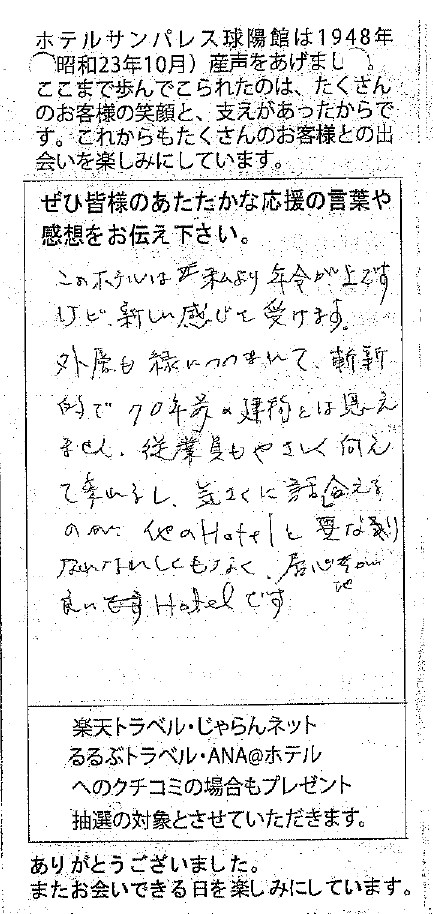 ホテルサンパレス球陽館は1948年
(昭和23年10月)産声をあげました。
ここまで歩んでこられたのは、たくさん
のお客様の笑顔と、支えがあったからで
す。これからもたくさんのお客様との出
会いを楽しみにしています。
ぜひ皆様のあたたかな応援の言葉や
感想をお伝え下さい。
このホテルは 私より年令が上です
けど、新しい感じを受けます。
外層も緑につつまれて、斬新
的で70年前の建物とは思え
ません。従業員もやさしく
気さくに話合える
のが、他のHotelと異なり
なく、居心地が
良いHotelです
楽天トラベル・じゃらんネット
るるぶトラベル・ANA@ホテル
へのクチコミの場合もプレゼント
抽選の対象とさせていただきます。
ありがとうございました。
またお会いできる日を楽しみにしています。